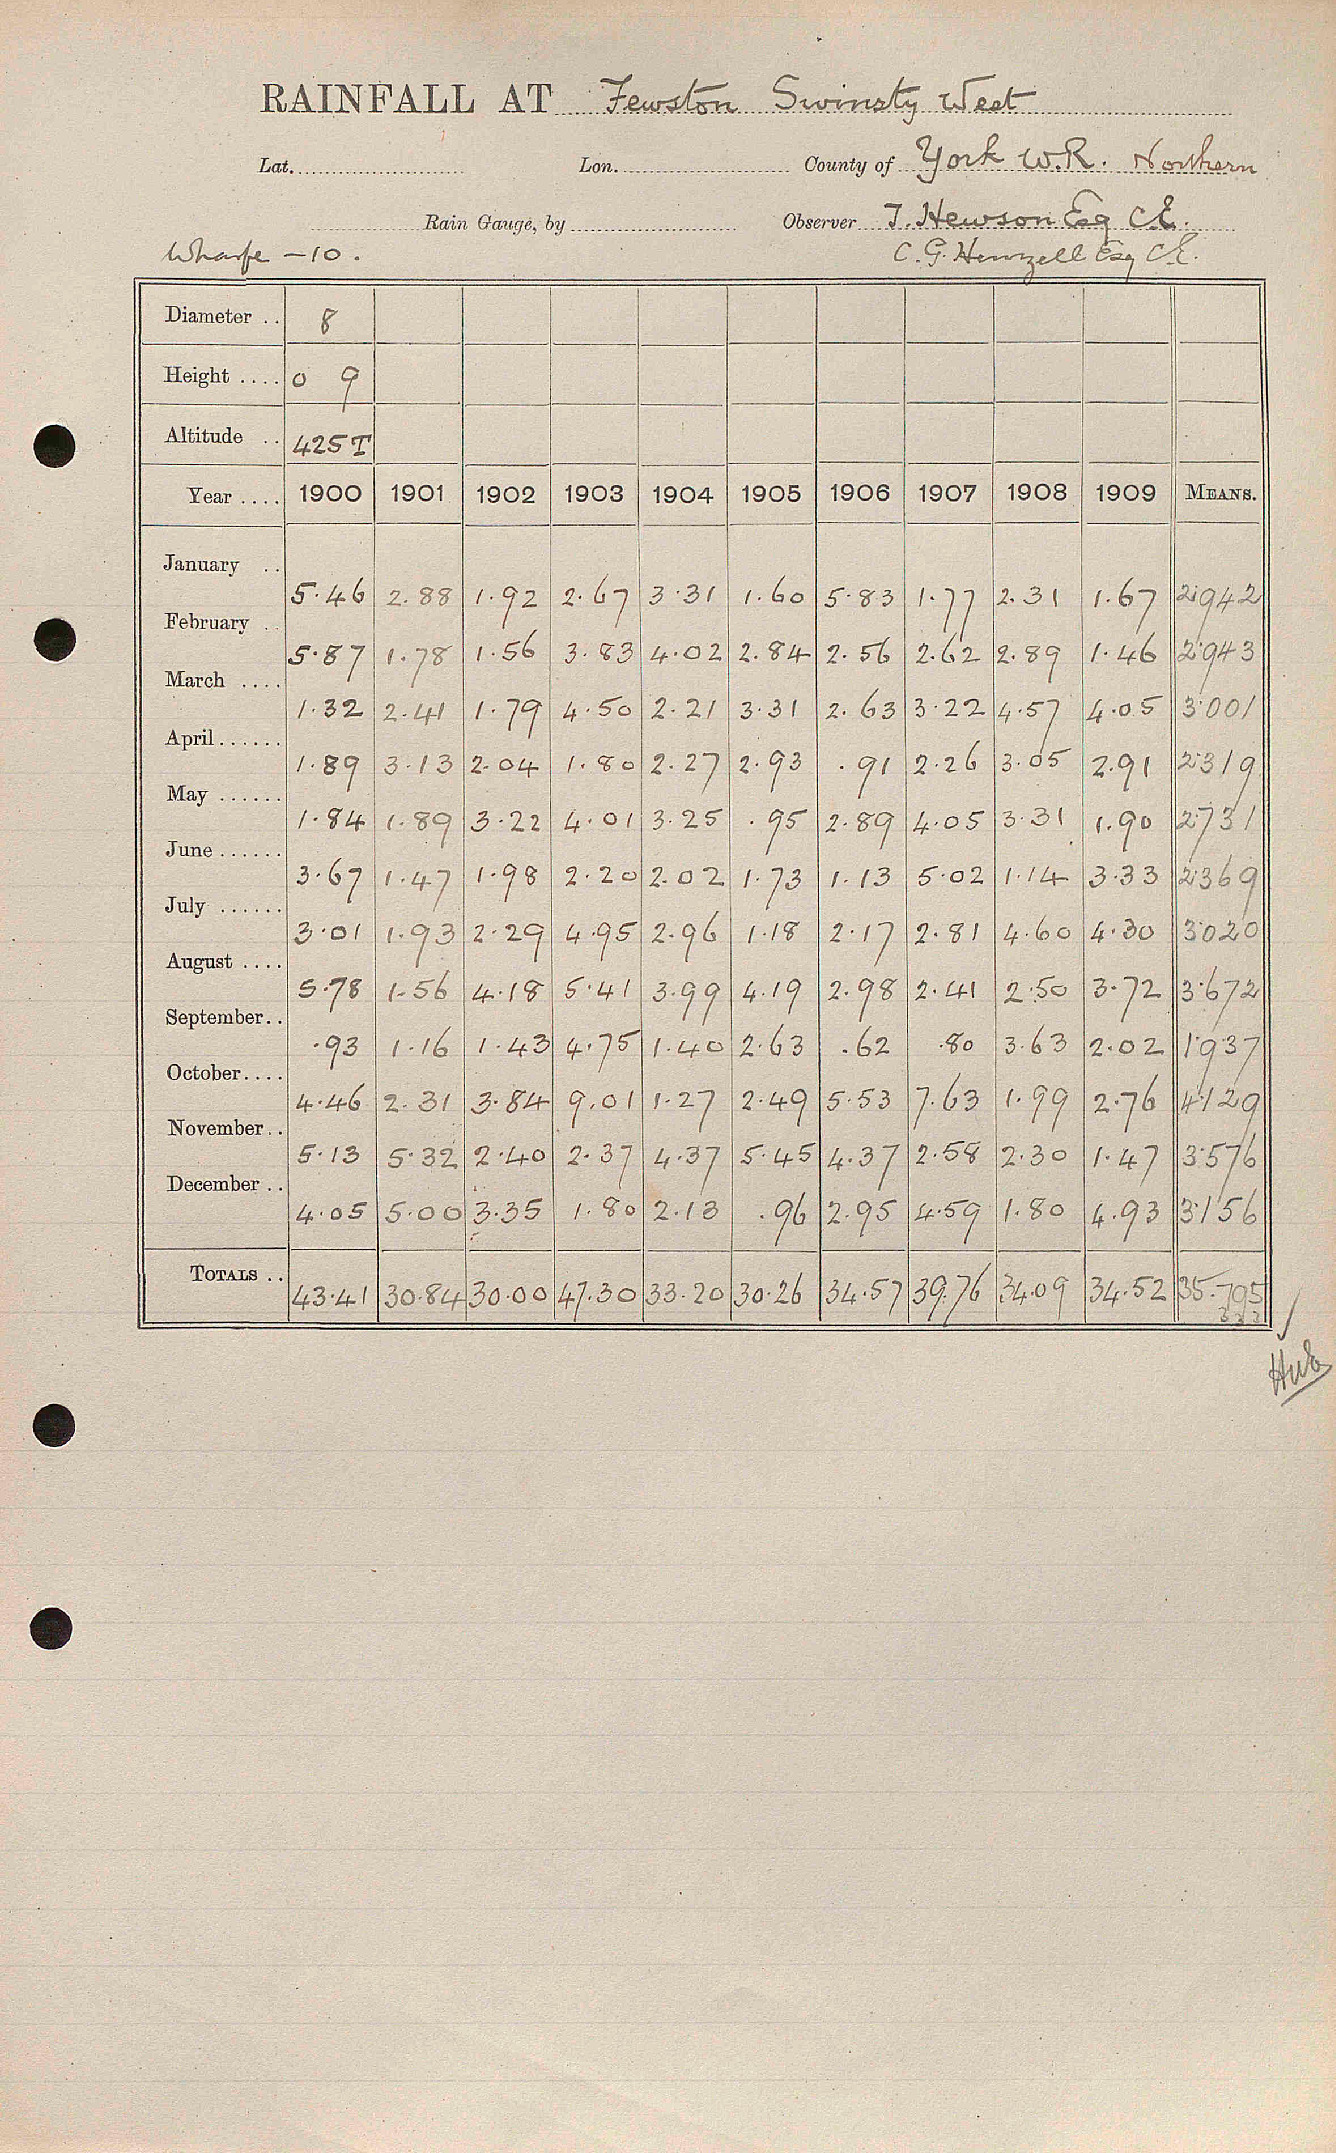 RAINFALL AT Fewston Swinsty West
Lat. Lon. County of York W.R. Northern
Rain Gauge, by Observer T. Hewson Esq C.E.
Wharfe - 10. C. G. Henzell Esq C.E.
Diameter .. 8
Height .... 0 9
Altitude .. 425 T
Year .... 1900 1901 1902 1903 1904 1905 1906 1907 1908 1909 MEANS.
January .. 5.46 2.88 1.92 2.67 3.31 1.60 5.83 1.77 2.31 1.67 2.942
February .. 5.87 1.78 1.56 3.83 4.02 2.84 2.56 2.62 2.89 1.46 2.943
March .... 1.32 2.41 1.79 4.50 2.21 3.31 2.63 3.22 4.57 4.05 3.001
April...... 1.89 3.13 2.04 1.80 2.27 2.93 .91 2.26 3.05 2.91 2.319
May ...... 1.84 1.89 3.22 4.01 3.25 .95 2.89 4.05 3.31 1.90 2.731
June ...... 3.67 1.47 1.98 2.20 2.02 1.73 1.13 5.02 1.14 3.33 2.369
July ...... 3.01 1.93 2.29 4.95 2.96 1.18 2.17 2.81 4.60 4.30 3.020
August .... 5.78 1.56 4.18 5.41 3.99 4.19 2.98 2.41 2.50 3.72 3.672
September.. .93 1.16 1.43 4.75 1.40 2.63 .62 .80 3.63 2.02 1.937
October.... 4.46 2.31 3.84 9.01 1.27 2.49 5.53 7.63 1.99 2.76 4.129
November.. 5.13 5.32 2.40 2.37 4.37 5.45 4.37 2.58 2.30 1.47 3.576
December .. 4.05 5.00 3.35 1.80 2.13 .96 2.95 4.59 1.80 4.93 3.156
TOTALS .. 43.41 30.84 30.00 47.30 33.20 30.26 34.57 39.76 34.09 34.52 35.795